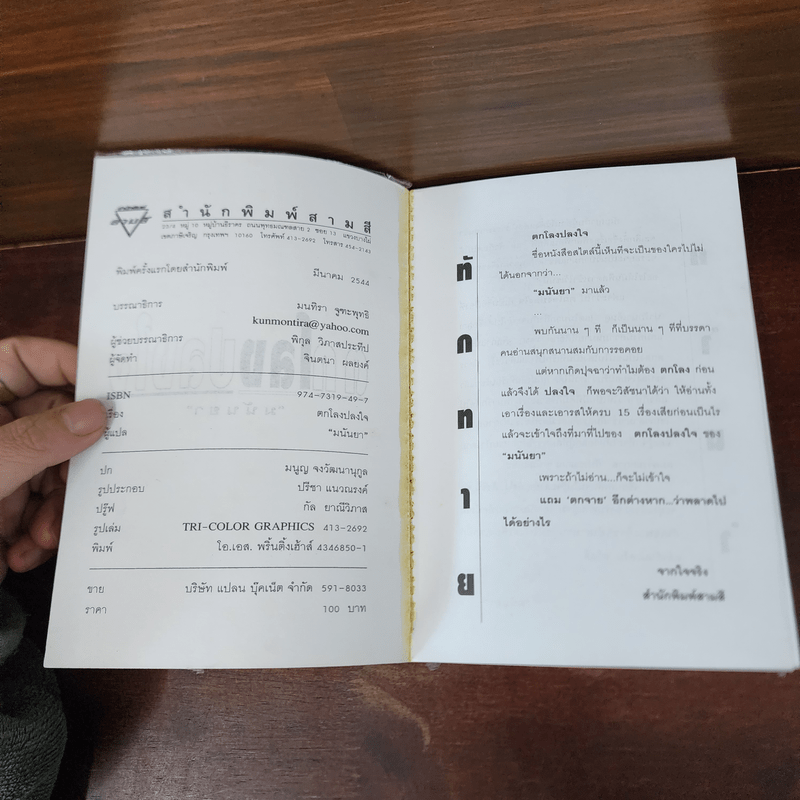 สำนักพิมพ์สามสี
เขตภาษีเจริญ กรุงเทพฯ 10160 โทรศัพท์ 413-2692 โทรสาร 454-2143
พิมพ์ครั้งแรกโดยสำนักพิมพ์ มีนาคม 2544
บรรณาธิการ มนทิรา จูฑะพุทธิ
kunmontira@yahoo.com
ผู้ช่วยบรรณาธิการ พิกุล วิภาสประทีป
ผู้จัดทำ จินตนา ผลยงค์
ISBN 974-7319-49-7
เรื่อง ตกโลงปลงใจ
ผู้แปล "มนันยา"
ปก มนูญ จงวัฒนานุกูล
รูปประกอบ ปรีชา แนวณรงค์
ปรู๊ฟ กัล ยาณีวิภาส
รูปเล่ม TRI-COLOR GRAPHICS 413-2692
พิมพ์ โอ.เอส. พริ้นติ้งเฮ้าส์ 4346850-1
ขาย บริษัท แปลน บุ๊คเน็ต จำกัด 591-8033
ราคา 100 บาท
ทักทาย
ตกโลงปลงใจ
ชื่อหนังสือสไตล์นี้เห็นทีจะเป็นของใครไปไม่
ได้นอกจากว่า...
"มนันยา" มาแล้ว
...
พบกันนาน ๆ ที ก็เป็นนาน ๆ ทีที่บรรดา
คนอ่านสนุกสนานสมกับการรอคอย
แต่หากเกิดปุจฉาว่าทำไมต้อง ตกโลง ก่อน
แล้วจึงได้ ปลงใจ ก็พอจะวิสัชนาได้ว่า ให้อ่านทั้ง
เอาเรื่องและเอารสให้ครบ 15 เรื่องเสียก่อนเป็นไร
แล้วจะเข้าใจถึงที่มาที่ไปของ ตกโลงปลงใจ ของ
"มนันยา"
เพราะถ้าไม่อ่าน...ก็จะไม่เข้าใจ
แถม 'ตกจาย' อีกต่างหาก...ว่าพลาดไป
ได้อย่างไร
จากใจจริง
สำนักพิมพ์สามสี